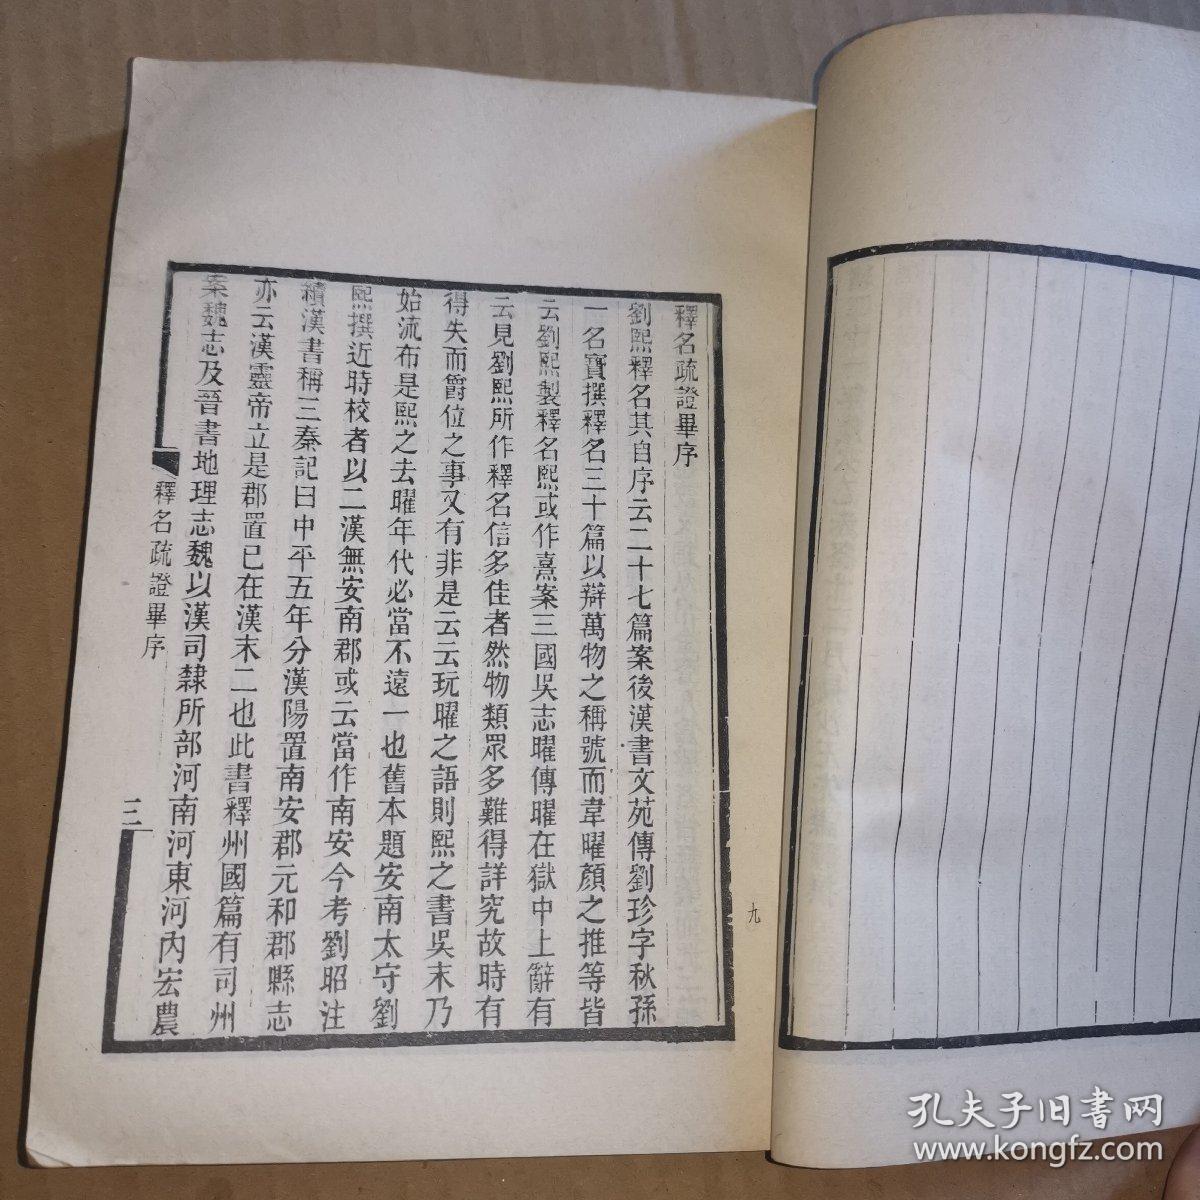 釋名疏證畢序
劉熙釋名其自序云二十七篇案後漢書文苑傳劉珍字秋孫
一名寶撰釋名三十篇以辯萬物之稱號而韋曜顏之推等皆
云劉熙製釋名熙或作熹案三國吳志曜傳曜在獄中上辭有
云見劉熙所作釋名信多佳者然物類眾多難得詳究故時有
得失而爵位之事又有非是云云玩曜之語則熙之書吳末乃
始流布是熙之去曜年代必當不遠一也舊本題安南太守劉
熙撰近時校者以二漢無安南郡或云當作南安今考劉昭注
續漢書稱三秦記曰中平五年分漢陽置南安郡元和郡縣志
亦云漢靈帝立是郡置已在漢末二也此書釋州國篇有司州
案魏志及晉書地理志魏以漢司隸所部河南河東河內宏農
釋名疏證畢序
三
九
孔夫子旧书网
www.kongfz.com